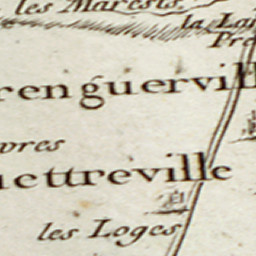 les Marests
la
renguervill
vres
uettreville
les Loges